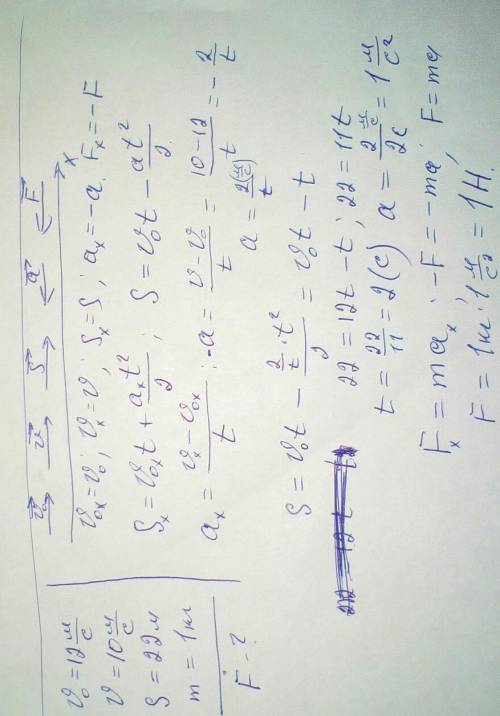 v₀ = 12 м/с
v = 10 м/с
S = 22 м
m = 1 кг
F - ?
v₀→ v→ S→ a← F←
x
v₀ₓ = v₀; vₓ = v; Sₓ = S; aₓ = -a. Fₓ = -F
Sₓ = v₀ₓt + aₓt²/2; S = v₀t - at²/2
aₓ = (vₓ - v₀ₓ)/t; -a = (v - v₀)/t = (10 - 12)/t = -2/t
a = 2(м/с)/t
S = v₀t - (2/t · t²)/2 = v₀t - t
22 = 12t - t; 22 = 11t
t = 22/11 = 2(с) a = 2 м/с / 2с = 1 м/с²
Fₓ = maₓ; -F = -ma; F = ma
F = 1кг · 1 м/с² = 1Н.